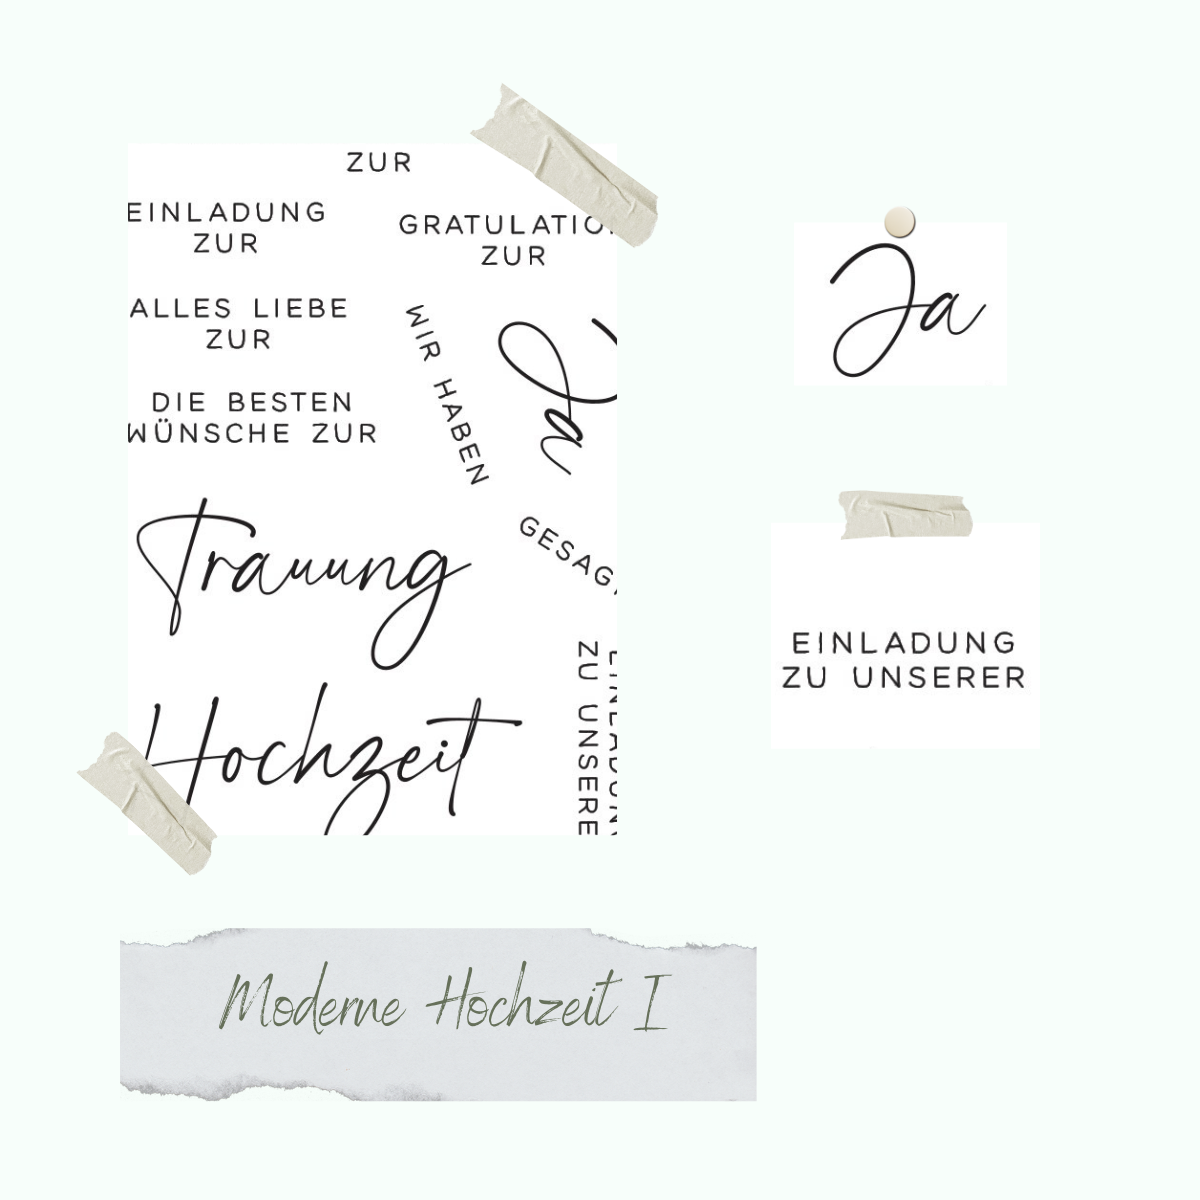 ZUR
EINLADUNG
ZUR
GRATULATIO
ZUR
ALLES LIEBE
ZUR
WIR HABEN
Ja
DIE BESTEN
WÜNSCHE ZUR
GESAG
Trauung
Hochzeit
EINLADUN
ZU UNSERE
Ja
EINLADUNG
ZU UNSERER
Moderne Hochzeit I